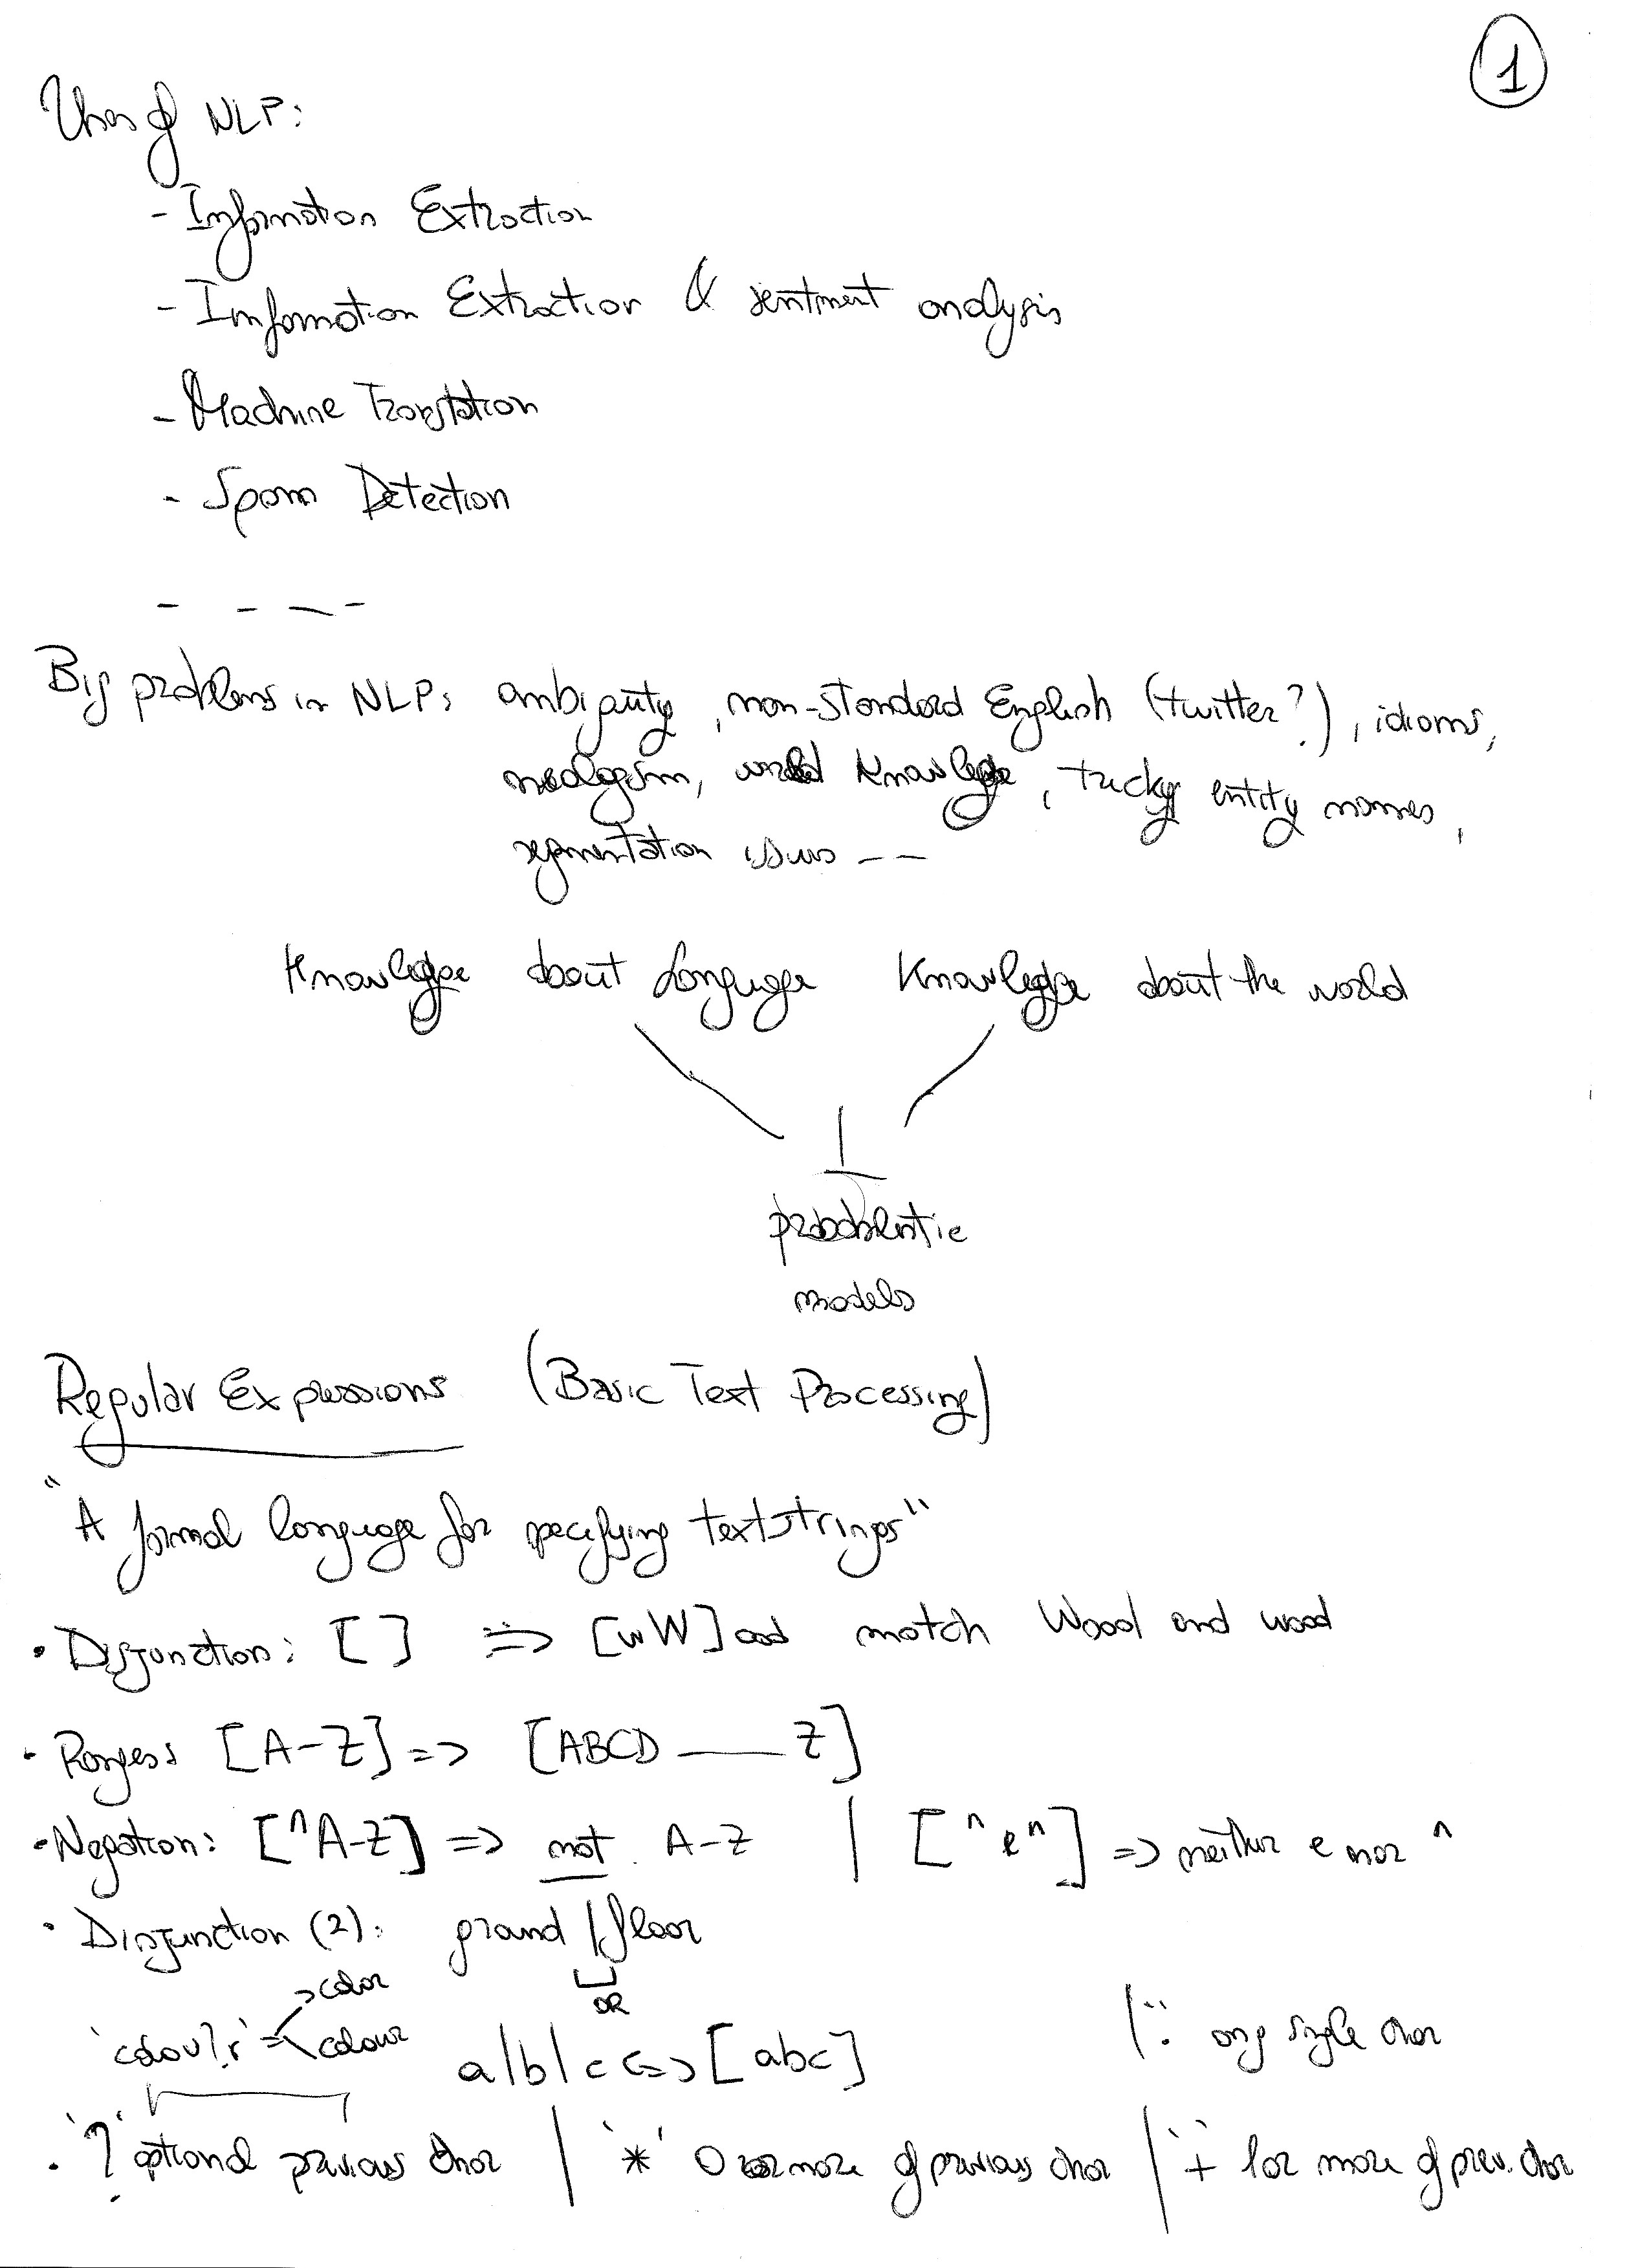 1
Uses of NLP:
- Information Extraction
- Information Extraction & sentiment analysis
- Machine Translation
- Spam Detection
- - - -
Big problems in NLP: ambiguity, non-standard English (twitter?), idioms,
neologism, world knowledge, tricky entity names,
segmentation issues --
Knowledge about language Knowledge about the world
probabilistic
models
Regular Expressions (Basic Text Processing)
"A formal language for specifying text strings"
• Disjunction: [ ] => [wW]ood match Wood and wood
• Ranges: [A-Z] => [ABCD — Z]
• Negation: [^A-Z] => not A-Z | [^e^] => neither e nor ^
• Disjunction (2): ground | floor
OR
'colou?r' => color
colour
a|b|c <=> [abc]
| '.' any single char
• '?' optional previous char | '*' 0 or more of previous char | '+' 1 or more of prev. char